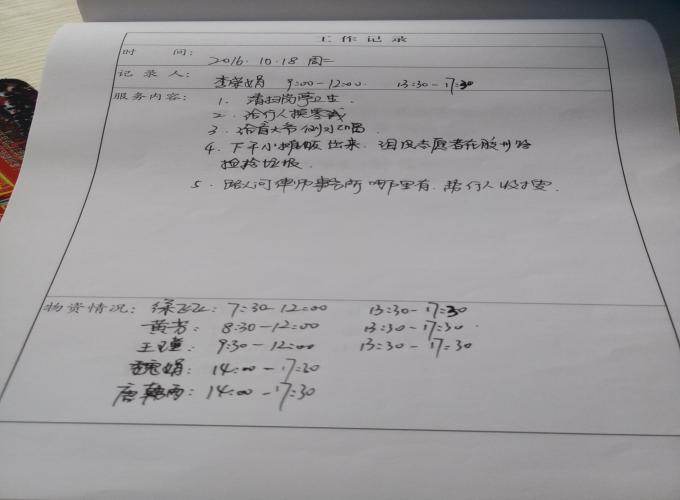 工作记录
时 间： 2016.10.18 周二
记录人： 李荣娟 9:00-12:00 13:30-17:30
服务内容： 1. 清扫岗亭卫生.
2. 给行人换零钱
3. 给大爷测血
4. 下午小摊贩出来,志愿者在胶州路
捡拾垃圾.
5. 路人问律师事务所哪里有.帮行人
物资情况： 徐: 7:30-12:00 13:30-17:30
黄芳: 8:30-12:00 13:30-17:30.
王: 9:30-12:00 13:30-17:30
魏娟: 14:00-17:30
唐雨: 14:00-17:30